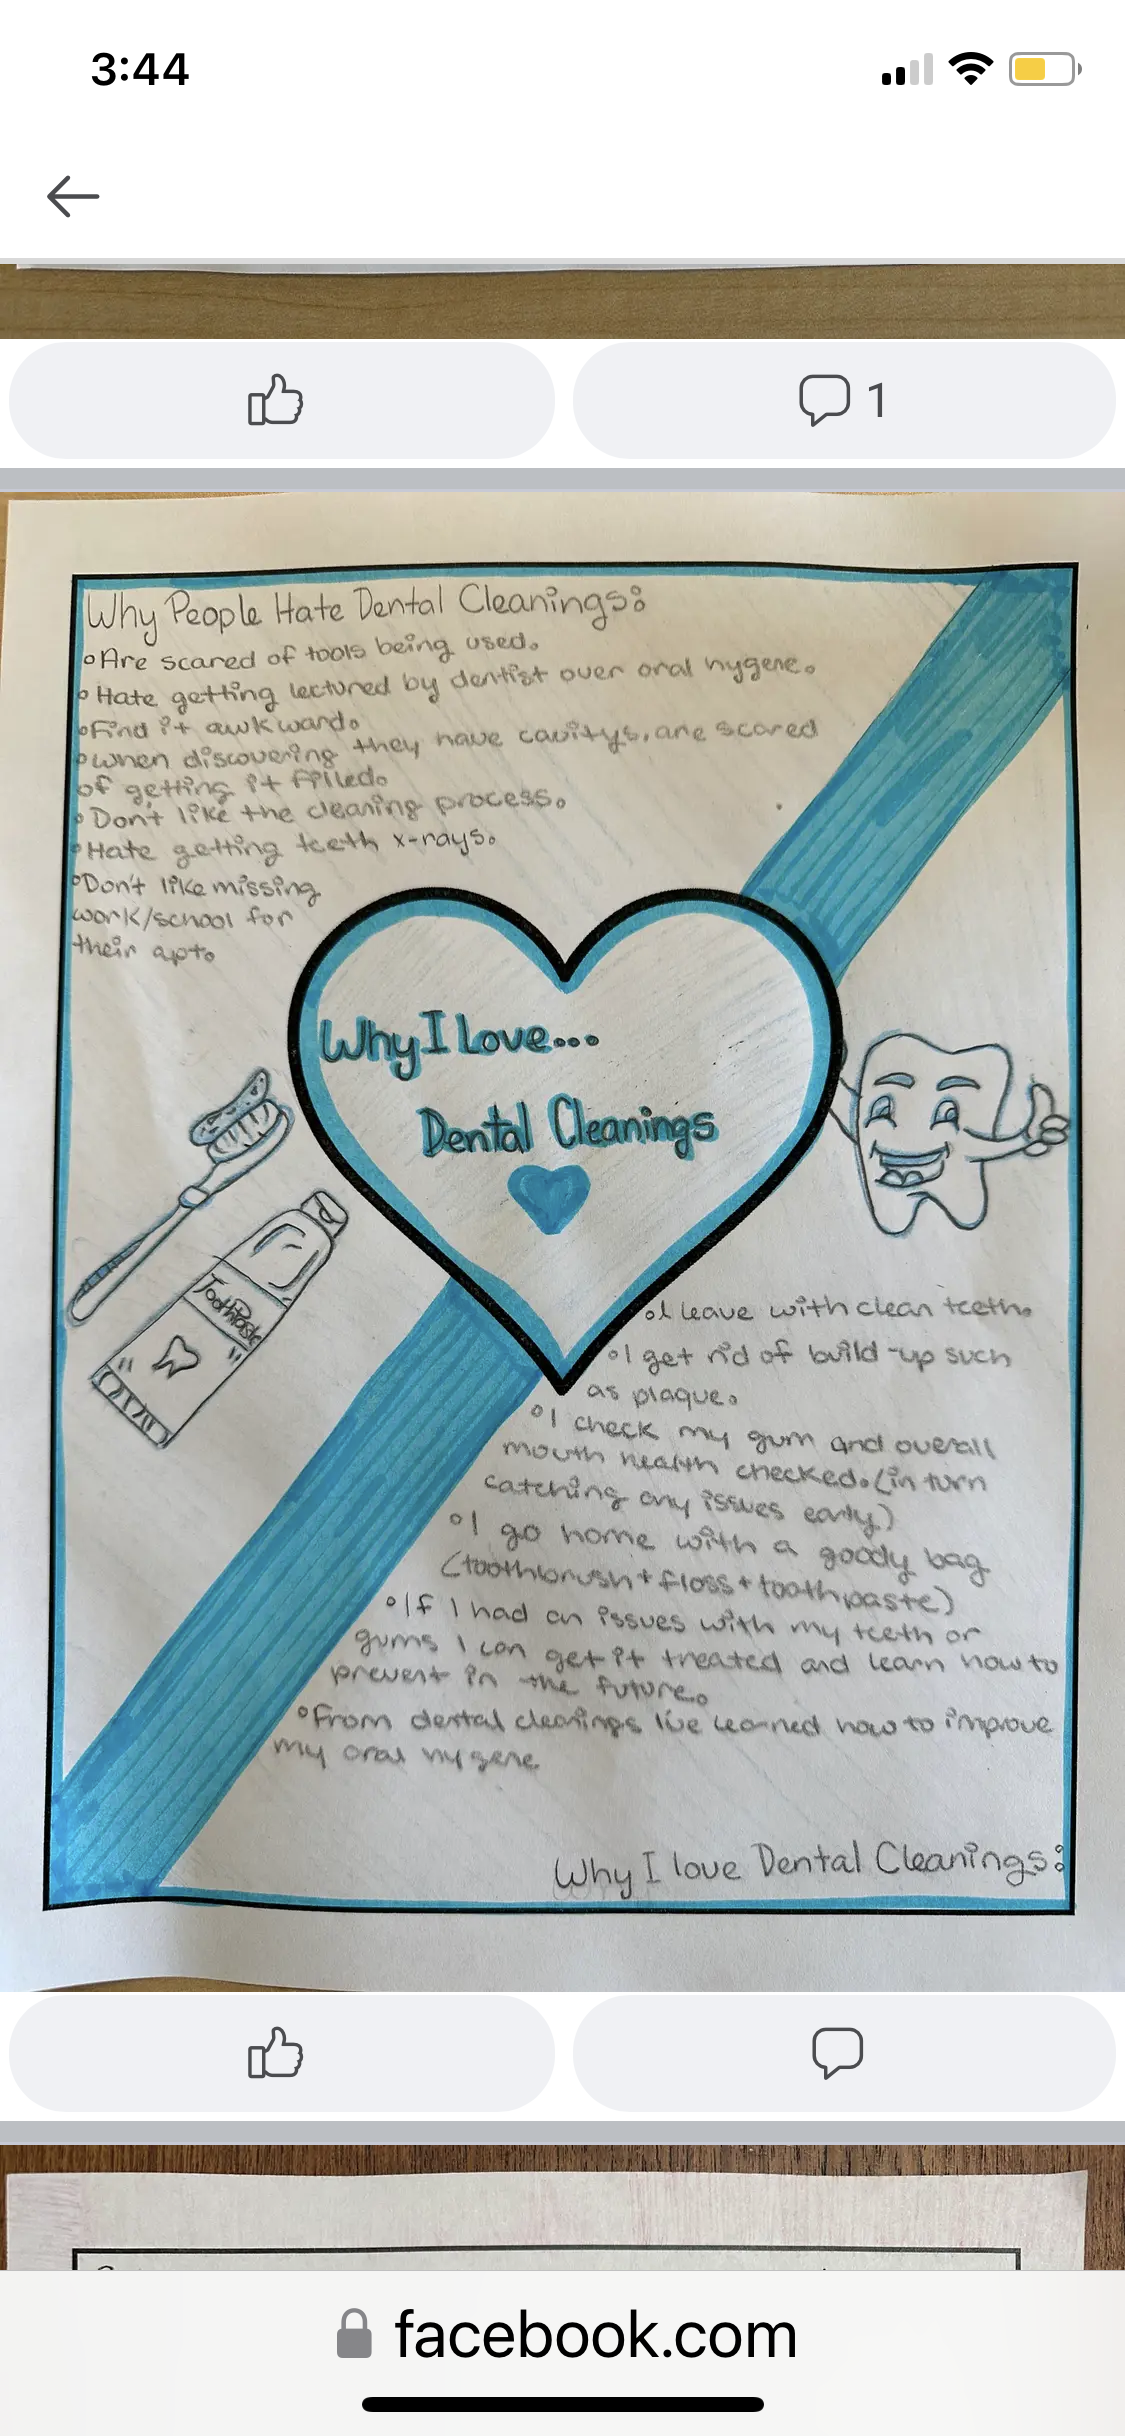 3:44
1
Why People Hate Dental Cleanings:
• Are scared of tools being used.
• Hate getting lectured by dentist over oral hygene.
• Find it awkward.
• When discovering they have cavitys, are scared
of getting it filled.
• Don't like the cleaning process.
• Hate getting teeth x-rays.
• Don't like missing
work/school for
their apt.
Why I Love...
Dental Cleanings
Toothpaste
• I leave with clean teeth.
• I get rid of build-up such
as plaque.
• I check my gum and overall
mouth health checked. (in turn
catching any issues early)
• I go home with a goody bag
(toothbrush + floss + toothpaste)
• If I had an issues with my teeth or
gums I can get it treated and learn how to
prevent in the future.
• From dental cleanings I've learned how to improve
my oral hygene
Why I love Dental Cleanings:
facebook.com